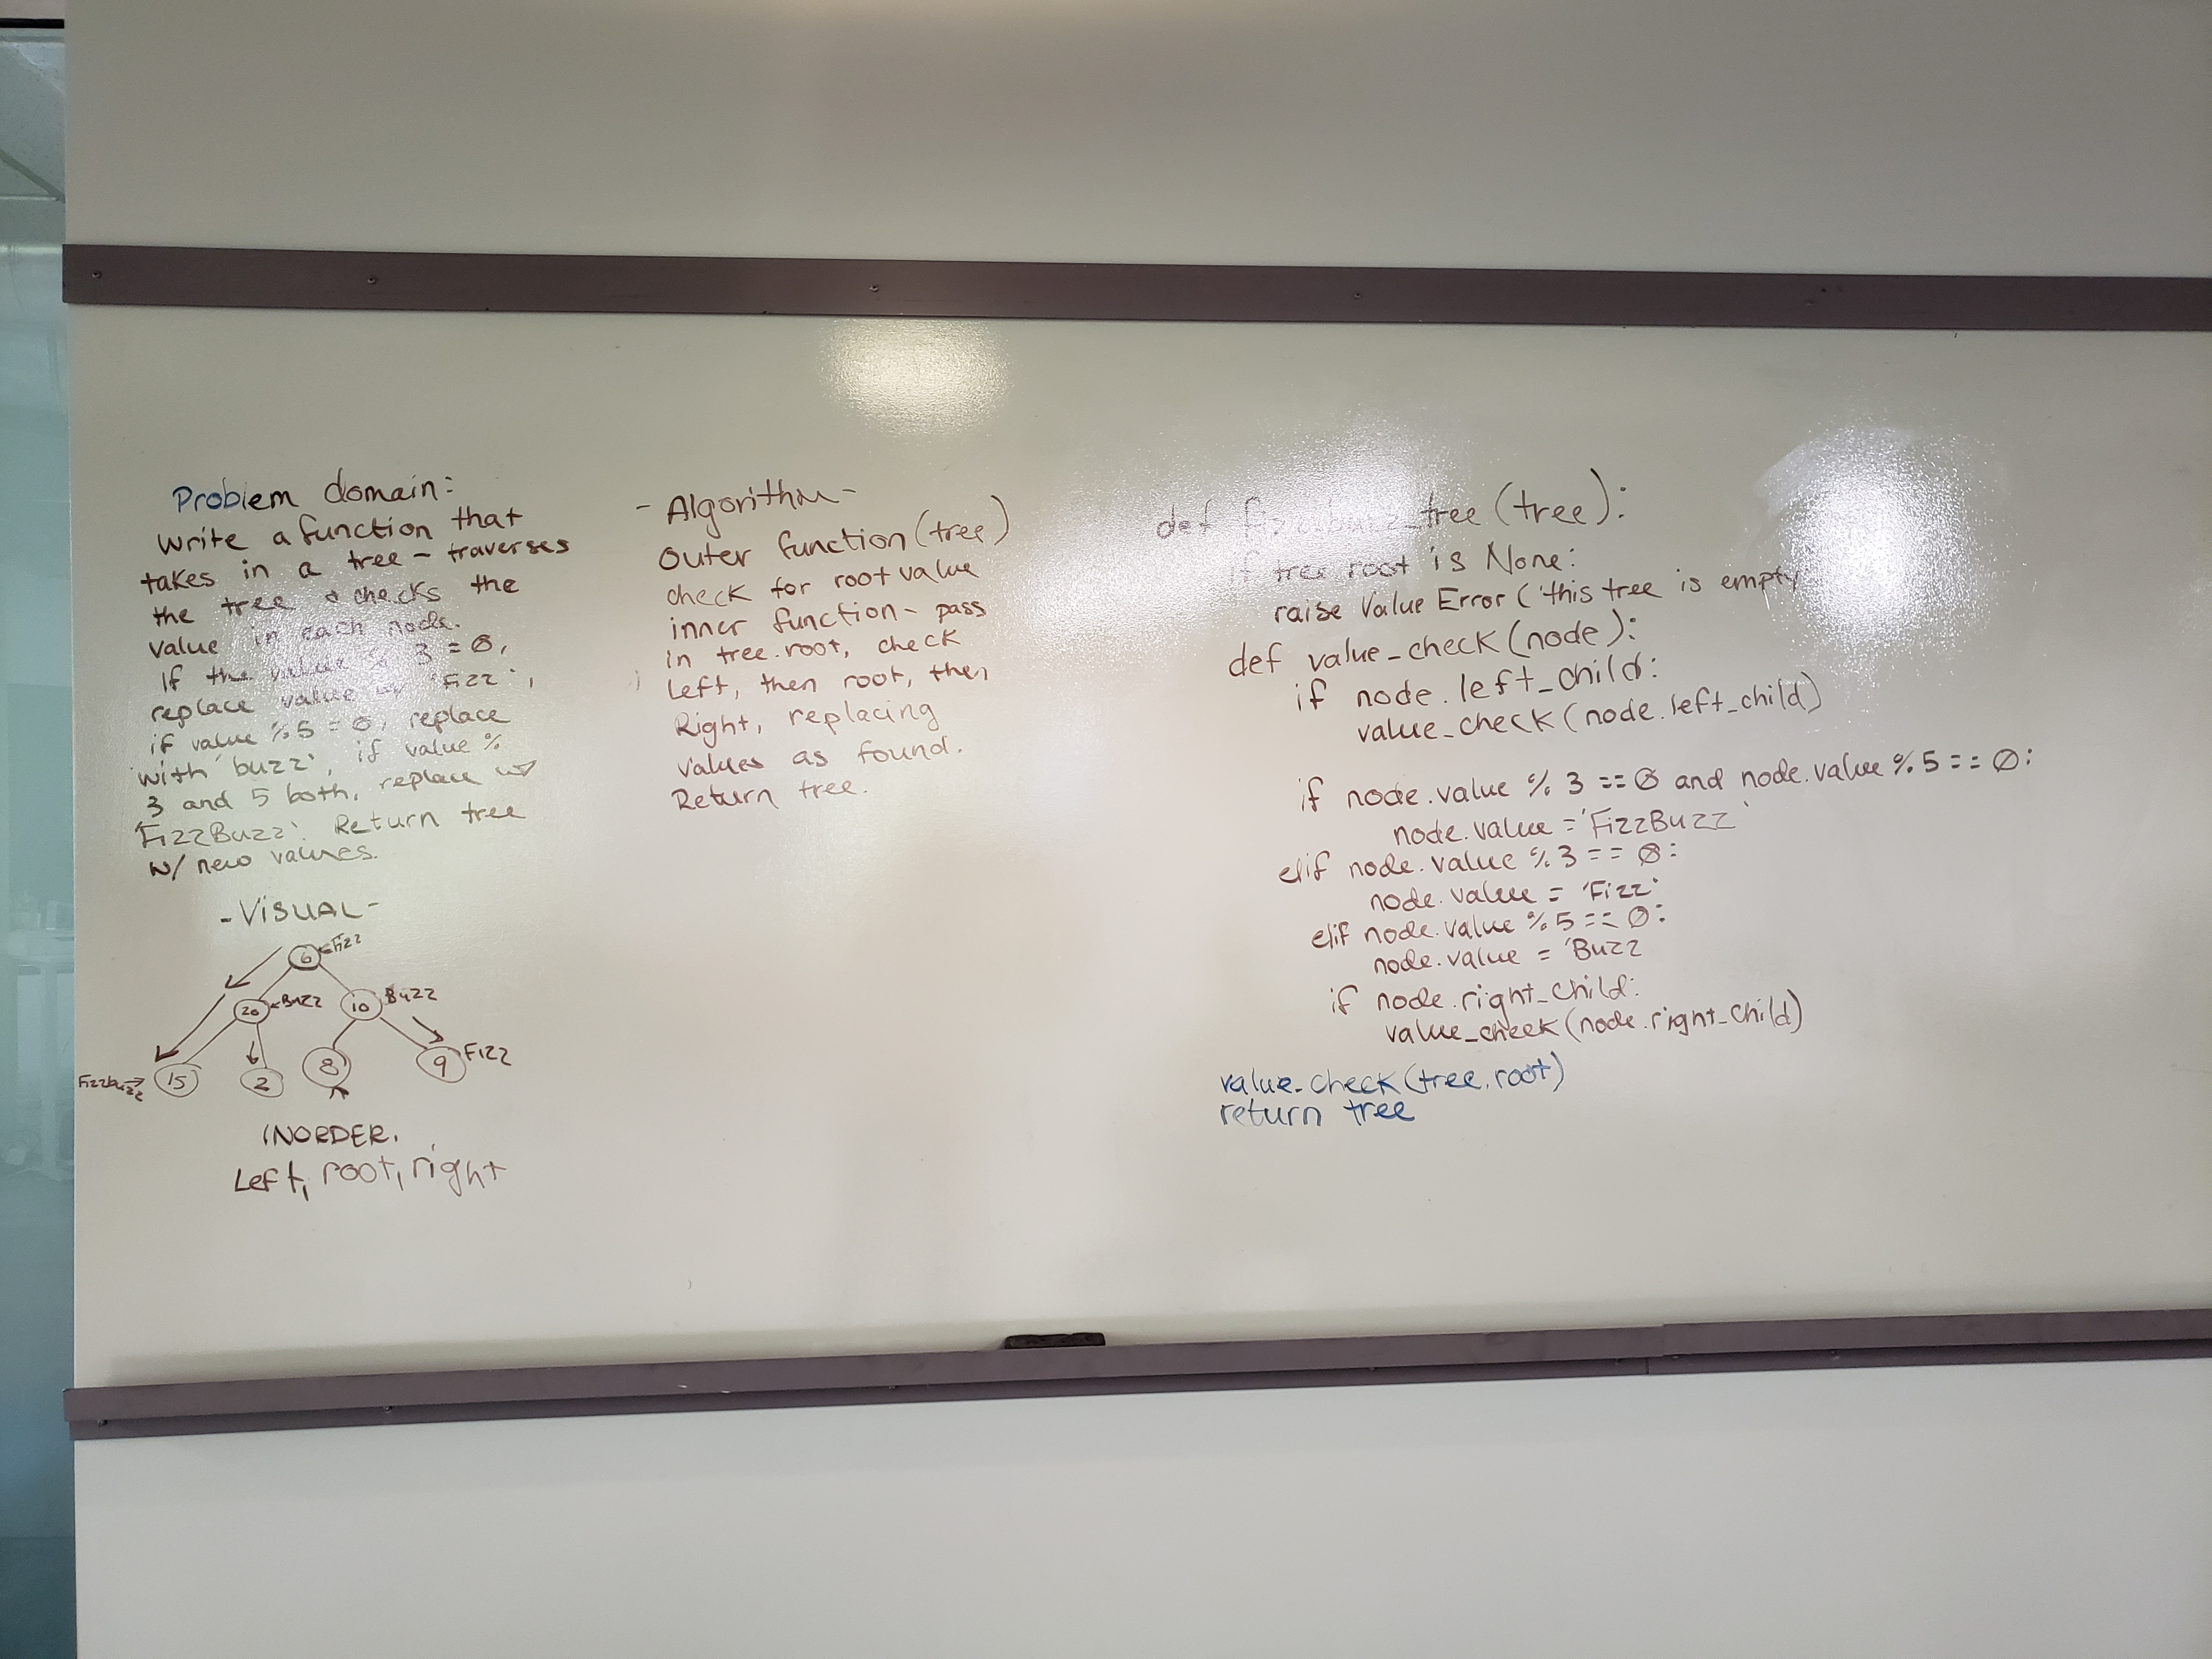 Problem domain:
Write a function that
takes in a tree - traverses
the tree & checks the
value in each node.
If the value % 3 = 0,
replace value w/ 'Fizz',
if value % 5 = 0, replace
with 'buzz', if value %
3 and 5 both, replace w/
'FizzBuzz'. Return tree
w/ new values.
- VISUAL -
6 Fizz
20 Buzz 10 Buzz
Fizzbuzz 15 2 8 9 Fizz
INORDER.
Left, root, right
- Algorithm -
Outer function (tree)
check for root value
inner function - pass
in tree.root, check
Left, then root, then
Right, replacing
values as found.
Return tree.
def fizzbuzz_tree (tree):
if tree.root is None:
raise Value Error ('this tree is empty
def value_check (node):
if node.left_child:
value_check (node.left_child)
if node.value % 3 == 0 and node.value % 5 == 0:
node.value = 'FizzBuzz'
elif node.value % 3 == 0:
node.value = 'Fizz'
elif node.value % 5 == 0:
node.value = 'Buzz
if node.right_child:
value_check (node.right_child)
value_check (tree.root)
return tree